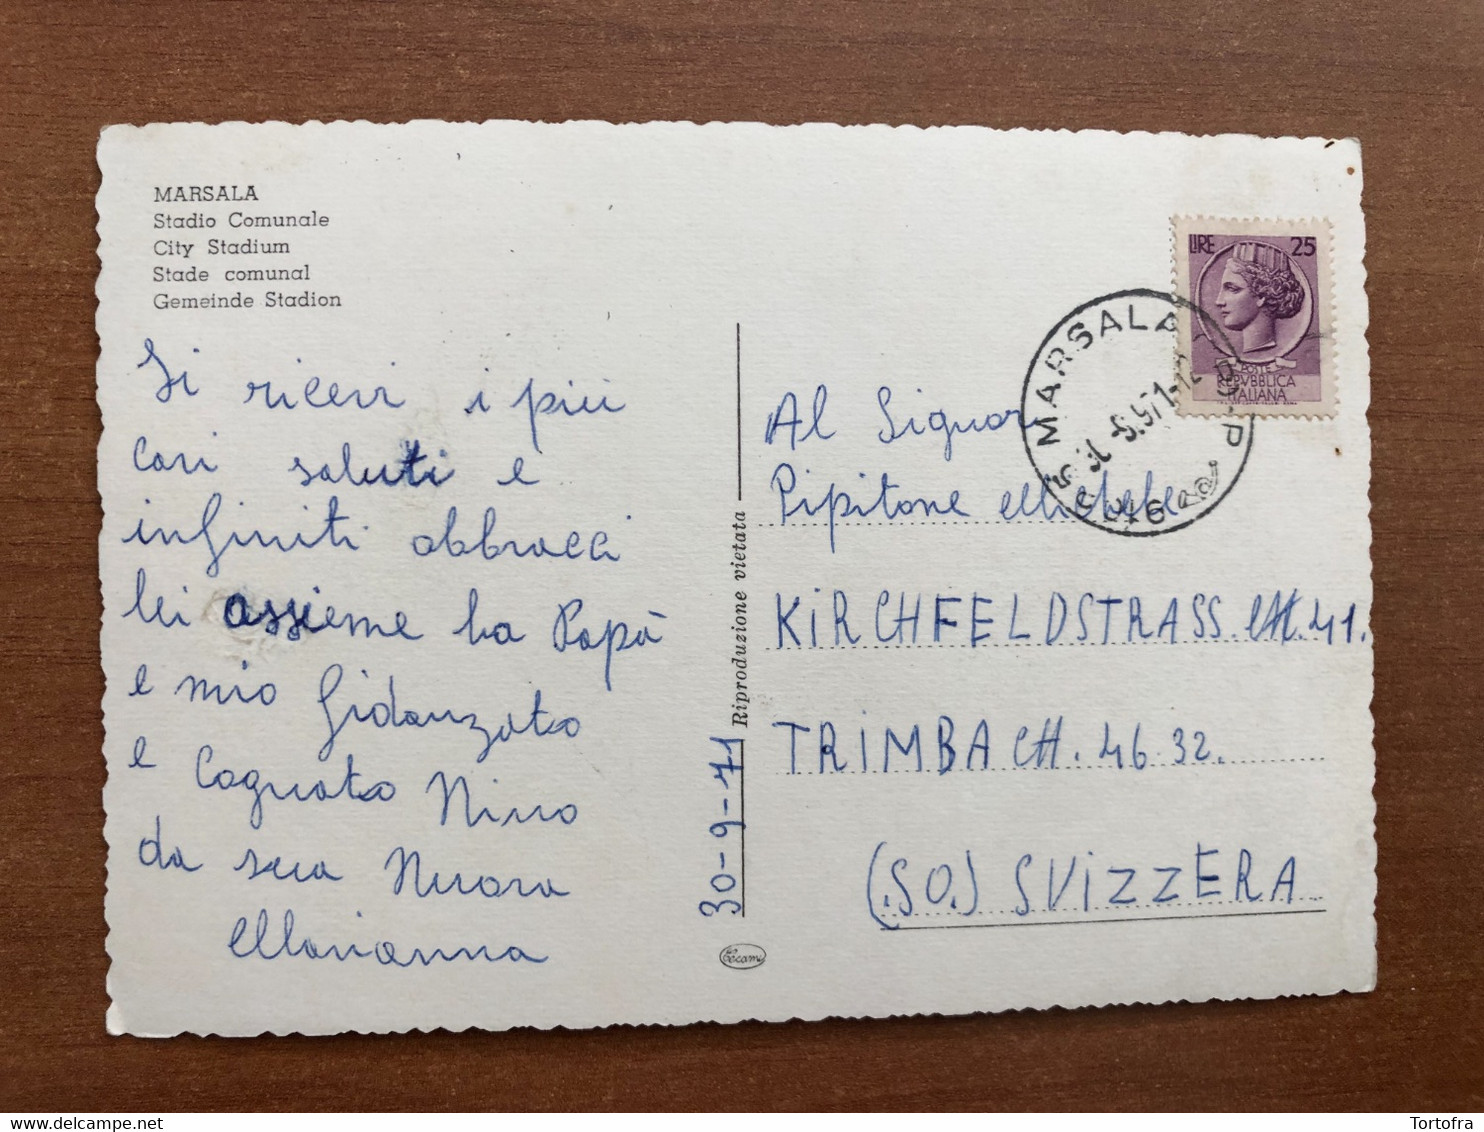 MARSALA
Stadio Comunale
City Stadium
Stade comunal
Gemeinde Stadion
Si ricevi i più
cari saluti e
infiniti abbracci
lei assieme ha Papà
e mio fidanzato
e Cognato Nino
da sua Nuora
Marianna
Riproduzione vietata
30-9-71
LIRE 25
POSTE
REPVBBLICA
ITALIANA
MARSALA
Al Signor
Pipitone Michele
KiRCHFELDSTRASS. 41.
TRiMBACH. 46 32.
(.SO.) SViZZERA
Tortofra